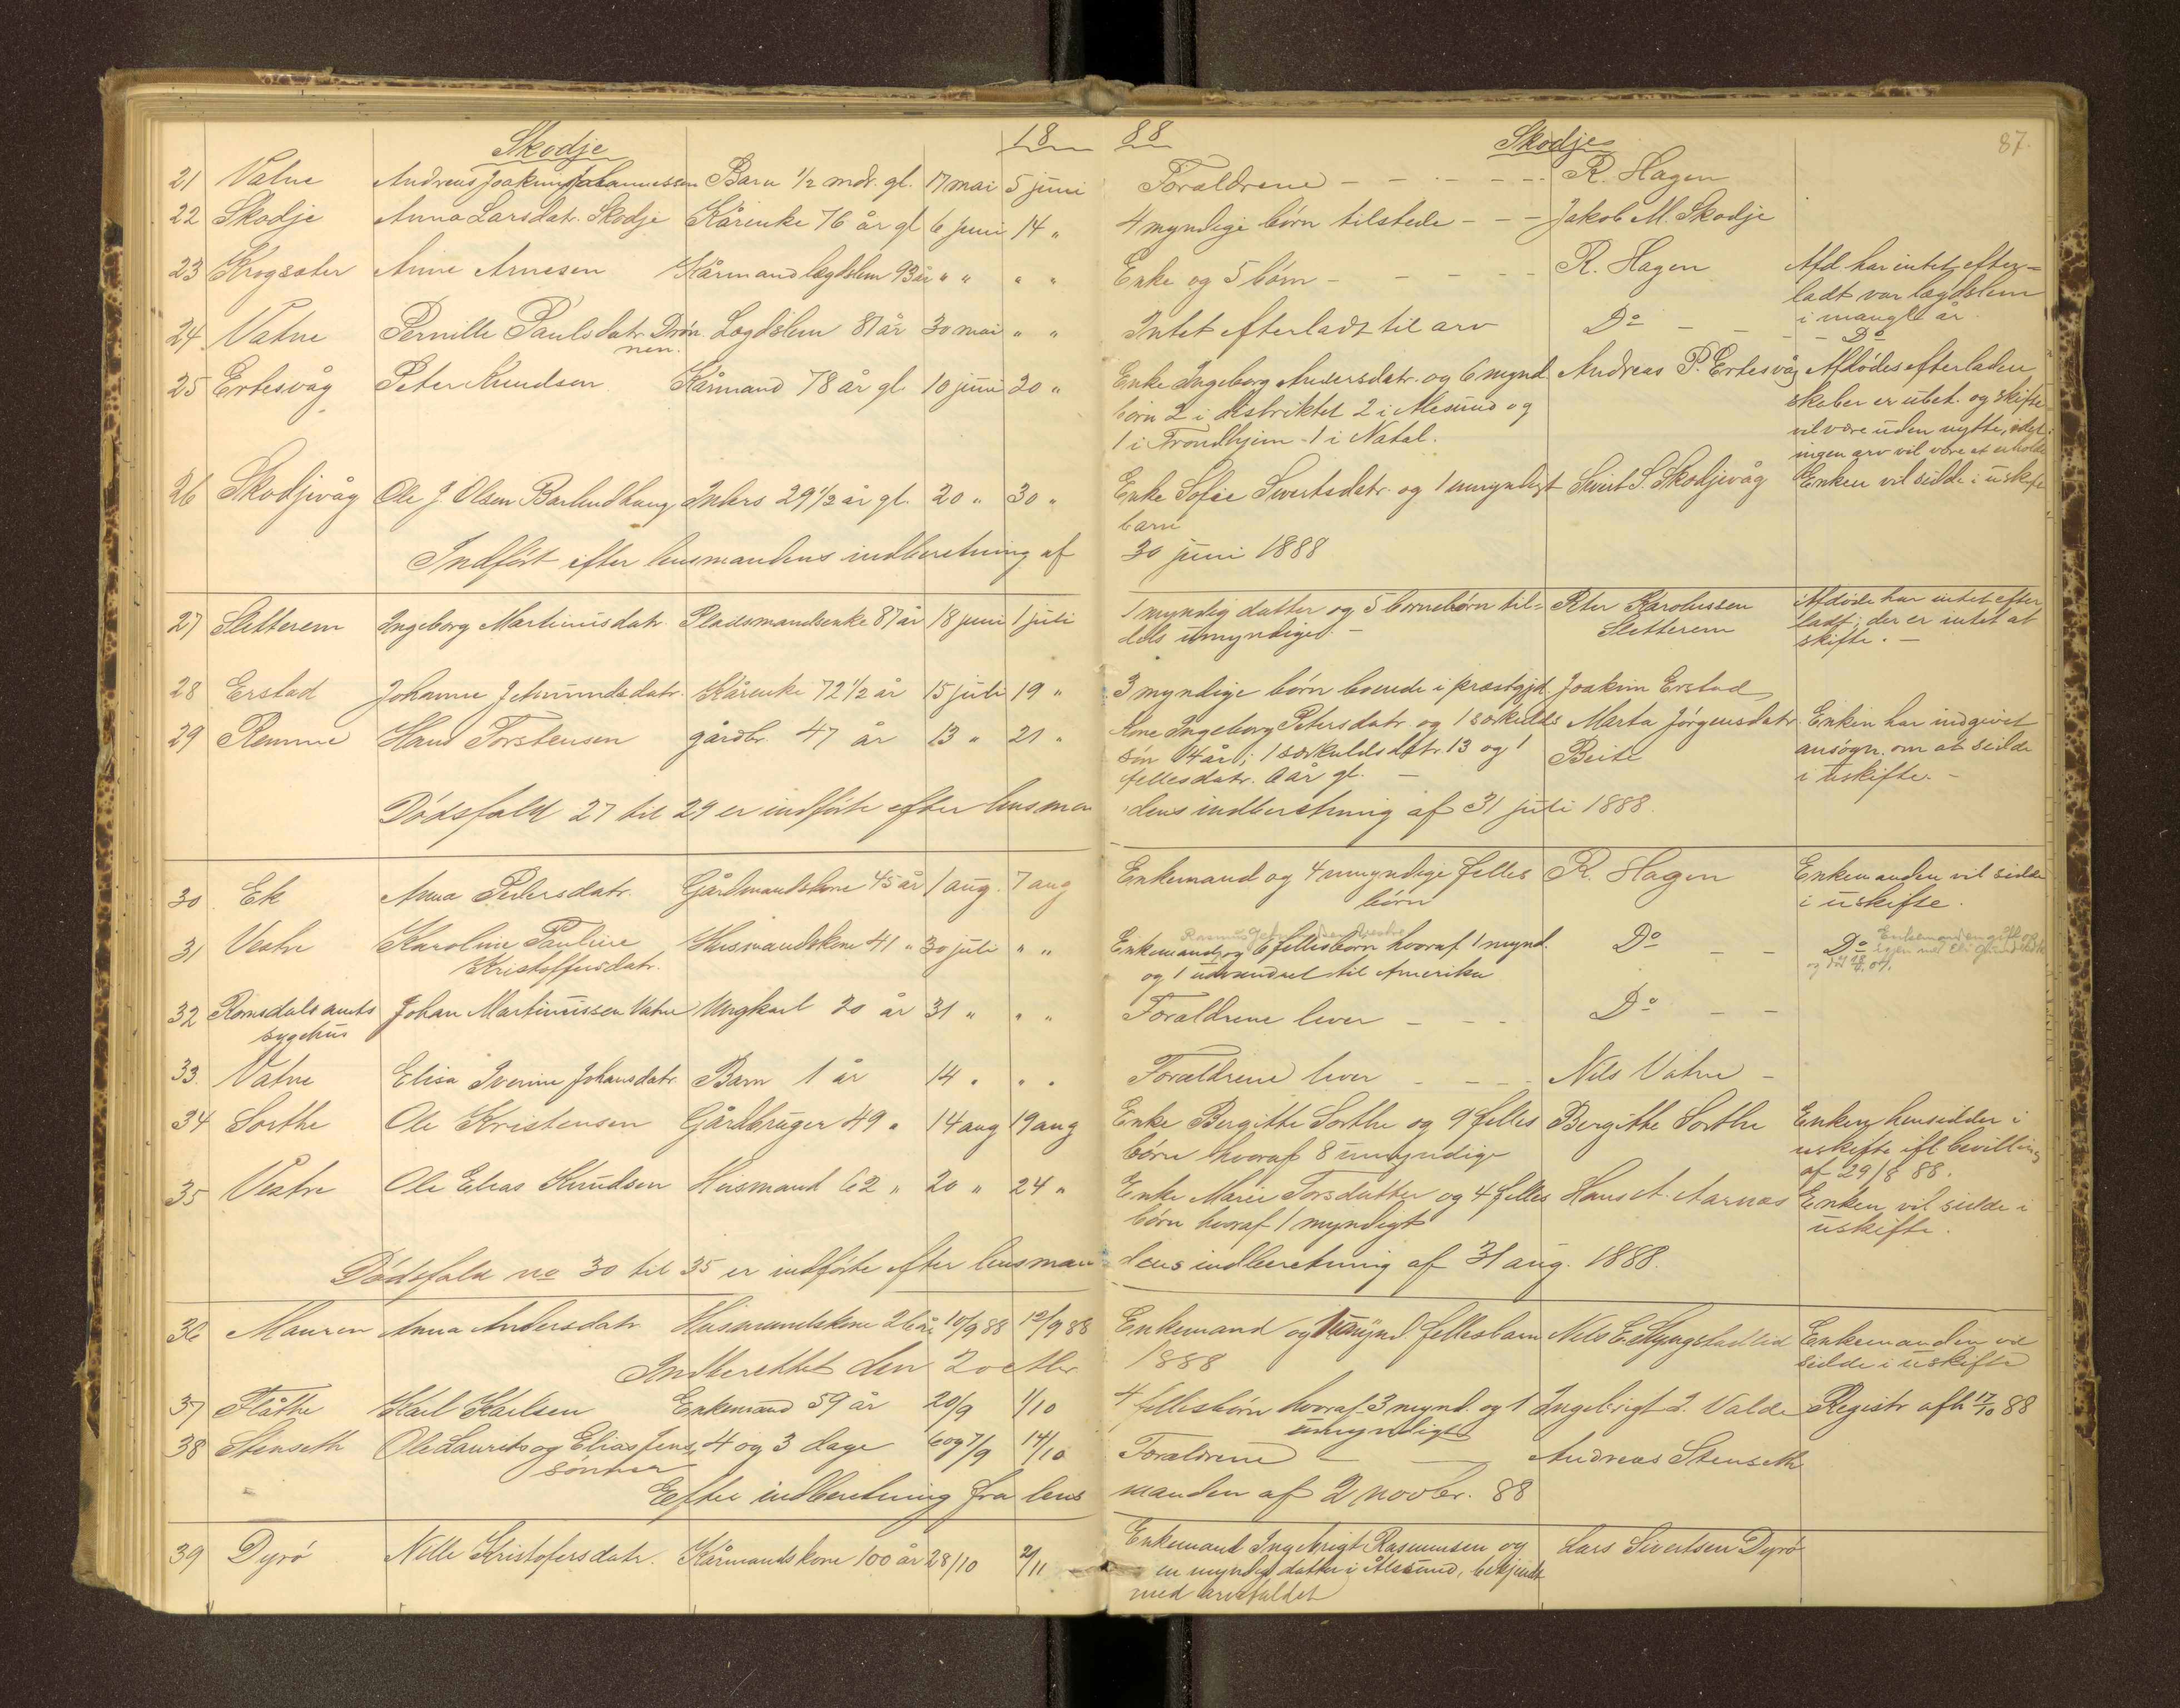 Skodje 18 88 Skodje 87.
21 Vatne Andreas Joakim Johannessen Barn 1/2 mdr. gl. 17 mai 5 juni Forældrene - - - - - R. Hagen
22 Skodje Anna Larsdatr. Skodje Kårenke 76 år gl 6 juni 14 " 4 myndige børn tilstede - - - Jakob M. Skodje
23 Krogsæter Arne Arnesen Kårmand lægdslem 93 år " " " " Enke og 5 børn - - - - R. Hagen Afd. har intet efter=
ladt var lægdslem
i mange år.
24 Vatne Pernille Paulsdatr. Drøn- Lægdslem 87 år 30 mai " " Intet efterladt til arv Do - - - Do
nen.
25 Ertesvåg Peter Knudsen Kårmand 78 år gl. 10 juni 20 " Enke Ingeborg Andersdatr. og 6 mynd. Andreas P. Ertesvåg Afdødes efterladen
børn 2 i distriktet 2 i Alesund og skaber er ubet. og skifte
1 i Trondhjem - 1 i Natal. vil være uden nytte, idet
ingen arv vil være at erholde
26 Skodjivåg Ole J. Olsen Barlindhaug Inders 29 1/2 år gl. 20 " 30 " Enke Sofie Sivertsdatr. og 1 umyndigt Sivert S. Skodjevåg Enken vil sidde i uskifte
barn
Indført efter lensmandens indberetning af 30 juni 1888
27 Sletterem Ingeborg Martinusdatr. Pladsmandsenke 87 år 18 juni 1 juli 1 myndig datter og 5 børnebørn til= Peter Karolussen Afdøde har intet efter
dels umyndige. - Sletterem ladt; der er intet at
skifte. -
28 Erstad Johanne Jetmundsdatr. Kårenke 72 1/2 år 15 juli 19 " 3 myndige børn boende i præstgjd. Joakim Erstad
29 Remme Hans Torstensen gårdbr. 47 år 13 " 21 " Kone Ingeborg Petersdatr. og 1 særkulds Marta Jørgensdatr. Enken har indgivet
søn 14 år; 1 særkuldsdatr. 13 og 1 Beite ansøgn. om at sidde
fellesdatr. år gl. - i uskifte. -
Dødsfald 27 til 29 er indførte efter lensman dens indberetning af 31 juli 1888.
30 Ek Anna Pedersdatr. Gårdmandskone 45 år 1 aug. 7 aug Enkemand og 4 umyndige felles R. Hagen Enkemanden vil sidde
børn i uskifte.
31 Vestre Karoline Pauline Husmandskone 41 " 30 juli " " Enkemand og 6 fellesbørn hvoraf 1 mynd. Do - - Do
Kristoffersdatr. og 1 udvandret til Amerika
32 Romsdals amts Johan Martinussen Vatne Ungkarl 20 år 31 " " " Forældrene lever - - - Do - -
sygehus
33. Vatne Elisa Iverine Johansdatr. Barn 1 år 14 " " " Forældrene lever - - - Nils Vatne -
34 Sorthe Ole Kristensen Gårdbruger 49 " 14 aug 19 aug Enke Bergitte Sorthe og 9 felles Bergitte Sorthe Enken hensidder i
børn hvoraf 8 umyndige uskifte ifl. bevilling
af 29/8 88.
35 Vestre Ole Elias Knudsen Husmand 62 " 20 " 24 " Enke Marie Torsdatter og 4 felles Hans A. Aarnæs Enken vil sidde i
børn hvoraf 1 myndigt uskifte.
Dødsfald no 30 til 35 er indførte efter lensman dens indberetning af 31 aug. 1888.
36 Mauren Anna Andersdatr Husmandskone 26 år 10/9 88 12/9 88 Enkemand og 1 umynd. fellesbarn Nils E. Slyngstadlid Enkemanden vil
Indberettet den 2 octbr. 1888 sidde i uskifte
37 Flåthe Karl Karlsen Enkemand 59 år 20/9 1/10 4 fellesbørn hvoraf 3 mynd. og 1 Ingebrigt L. Valde Registr afh 17/10 88
umyndigt
38 Stenseth Ole Laurits og Elias Jens, 4 og 3 dage 6 og 7/9 14/10 Forældrene - - Andreas Stenseth
sønner
Efter indberetning fra lens manden af 2 novbr. 88
39 Dyrø Nille Kristofersdatr. Kårmandskone 100 år 28/10 2/11 Enkemand Ingebrigt Rasmussen og Lars Sivertsen Dyrø
en myndig datter i Ålesund, bekjendt
med arvefaldet